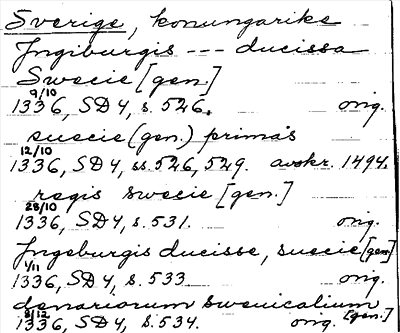 Sverige, konungarike
Ingiburgis --- ducissa
Swecie [gen.]
9/10
1336, SD4, s. 526. orig.
suecie (gen.) primas
12/10
1336, SD4, ss. 526, 529. avskr. 1494.
regis swecie [gen.]
28/10
1336, SD4, s. 531. orig.
Ingeburgis ducisse, suecie [gen]
1/11
1336, SD4, s. 533 orig.
denariorum swenicalium [gen.]
8/12
1336, SD4, s. 534. orig.